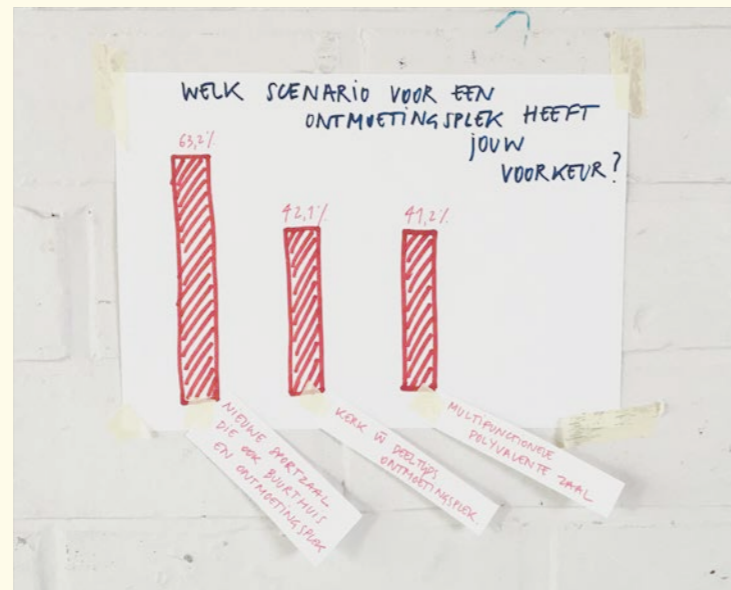 WELK SCENARIO VOOR EEN
ONTMOETINGSPLEK HEEFT
JOUW
VOORKEUR?
63,2%
42,1%
41,2%
NIEUWE SPORTZAAL
DIE OOK BUURTHUIS
EN ONTMOETINGSPLEK
KERK W DEELTIJDS
ONTMOETINGSPLEK
MULTIFUNCTIONELE
POLYVALENTE ZAAL